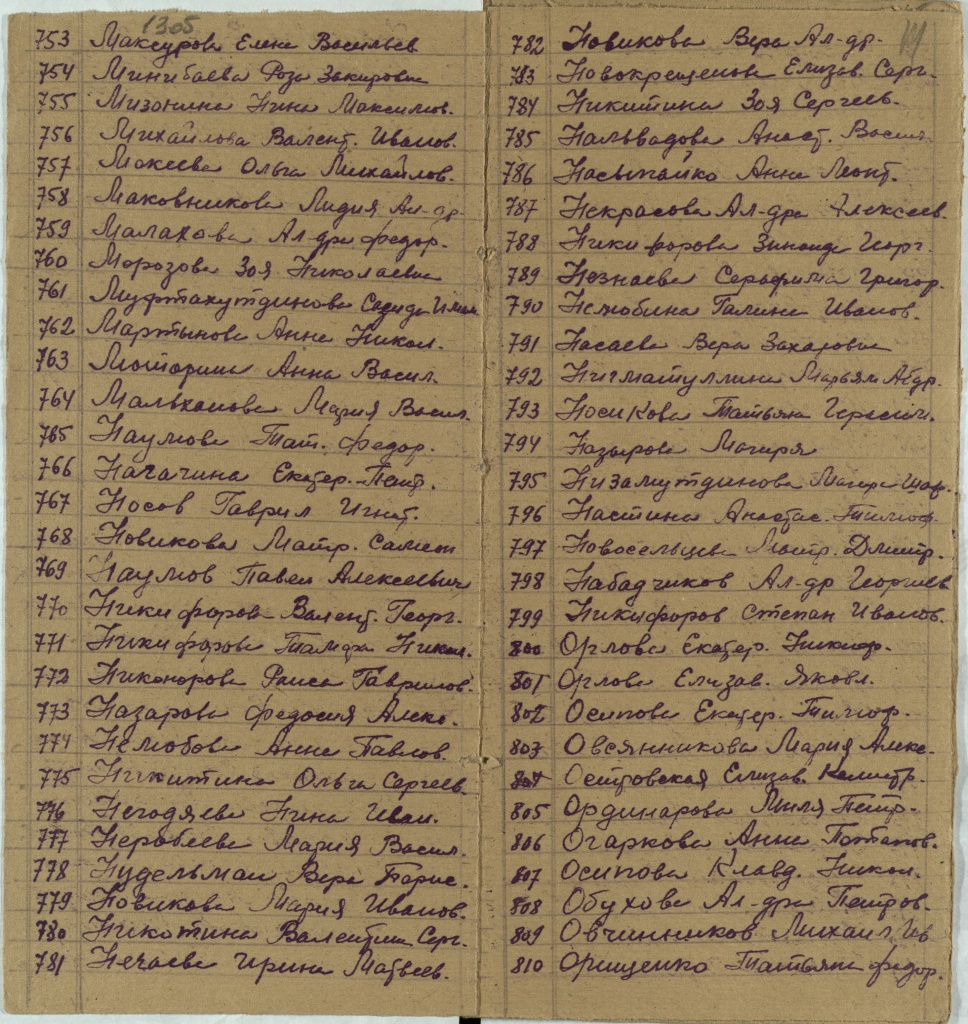 1305
753 Максурова Елена Васильев
754 Минибаева Роза Закировна
755 Мизонина Нина Максимов.
756 Михайлова Валент. Иванов.
757 Мокеева Ольга Михайлов.
758 Маковникова Лидия Ал-др.
759 Малахова Ал-дра Федор.
760 Морозова Зоя Николаевна
761 Муфтахутдинова
762 Мартынова Анна Никол.
763 Анна Васил.
764 Мальханова Мария Васил.
765 Наумова Тат. Федор.
766 Начачина Екатер. Петр.
767 Носов Гаврил Игнат.
768 Новикова Матр.
769 Наумов Павел Алексеевич
770 Никифоров Валент. Георг.
771 Никифорова Тамара Никол.
772 Никонорова Раиса Гаврилов.
773 Назарова Федосия Алекс.
774 Нелюбова Анна Павлов.
775 Никитина Ольга Сергеев.
776 Негодяева Нина Иван.
777 Мария Васил.
778 Нудельман Вера Борис.
779 Новикова Мария Иванов.
780 Никотина Валентин Серг.
781 Нечаева Ирина Матвеев.
782 Новикова Вера Ал-др.
783 Новокрещенова Елизав. Серг.
784 Никитина Зоя Сергеев.
785 Анаст. Васил.
786 Насыпайко Анна Леонт.
787 Некрасова Ал-дра Алексеев.
788 Никифорова Зинаида Георг.
789 Незнаева Серафима Григор.
790 Нелюбина Галина Иванов.
791 Насаева Вера Захаровна
792 Нигматуллина Марьям Абдр.
793 Носикова Татьяна Герасим.
794 Назырова Магиря
795 Низамутдинова
796 Настина Анастас. Тимоф.
797 Новосельцева Матр. Дмитр.
798 Набадчиков Ал-др Георгиев
799 Никифоров Степан Иванов.
800 Орлова Екатер. Никиф.
801 Орлова Елизав. Яковл.
802 Осипова Екатер. Тимоф.
803 Овсянникова Мария Алекс.
804 Островская Елизав.
805 Ординарова Миля Петр.
806 Огаркова Анна Потапов.
807 Осипова Клавд. Никол.
808 Обухова Ал-дра Петров.
809 Овчинников Михаил Ив
810 Онищенко Татьяна Федор.